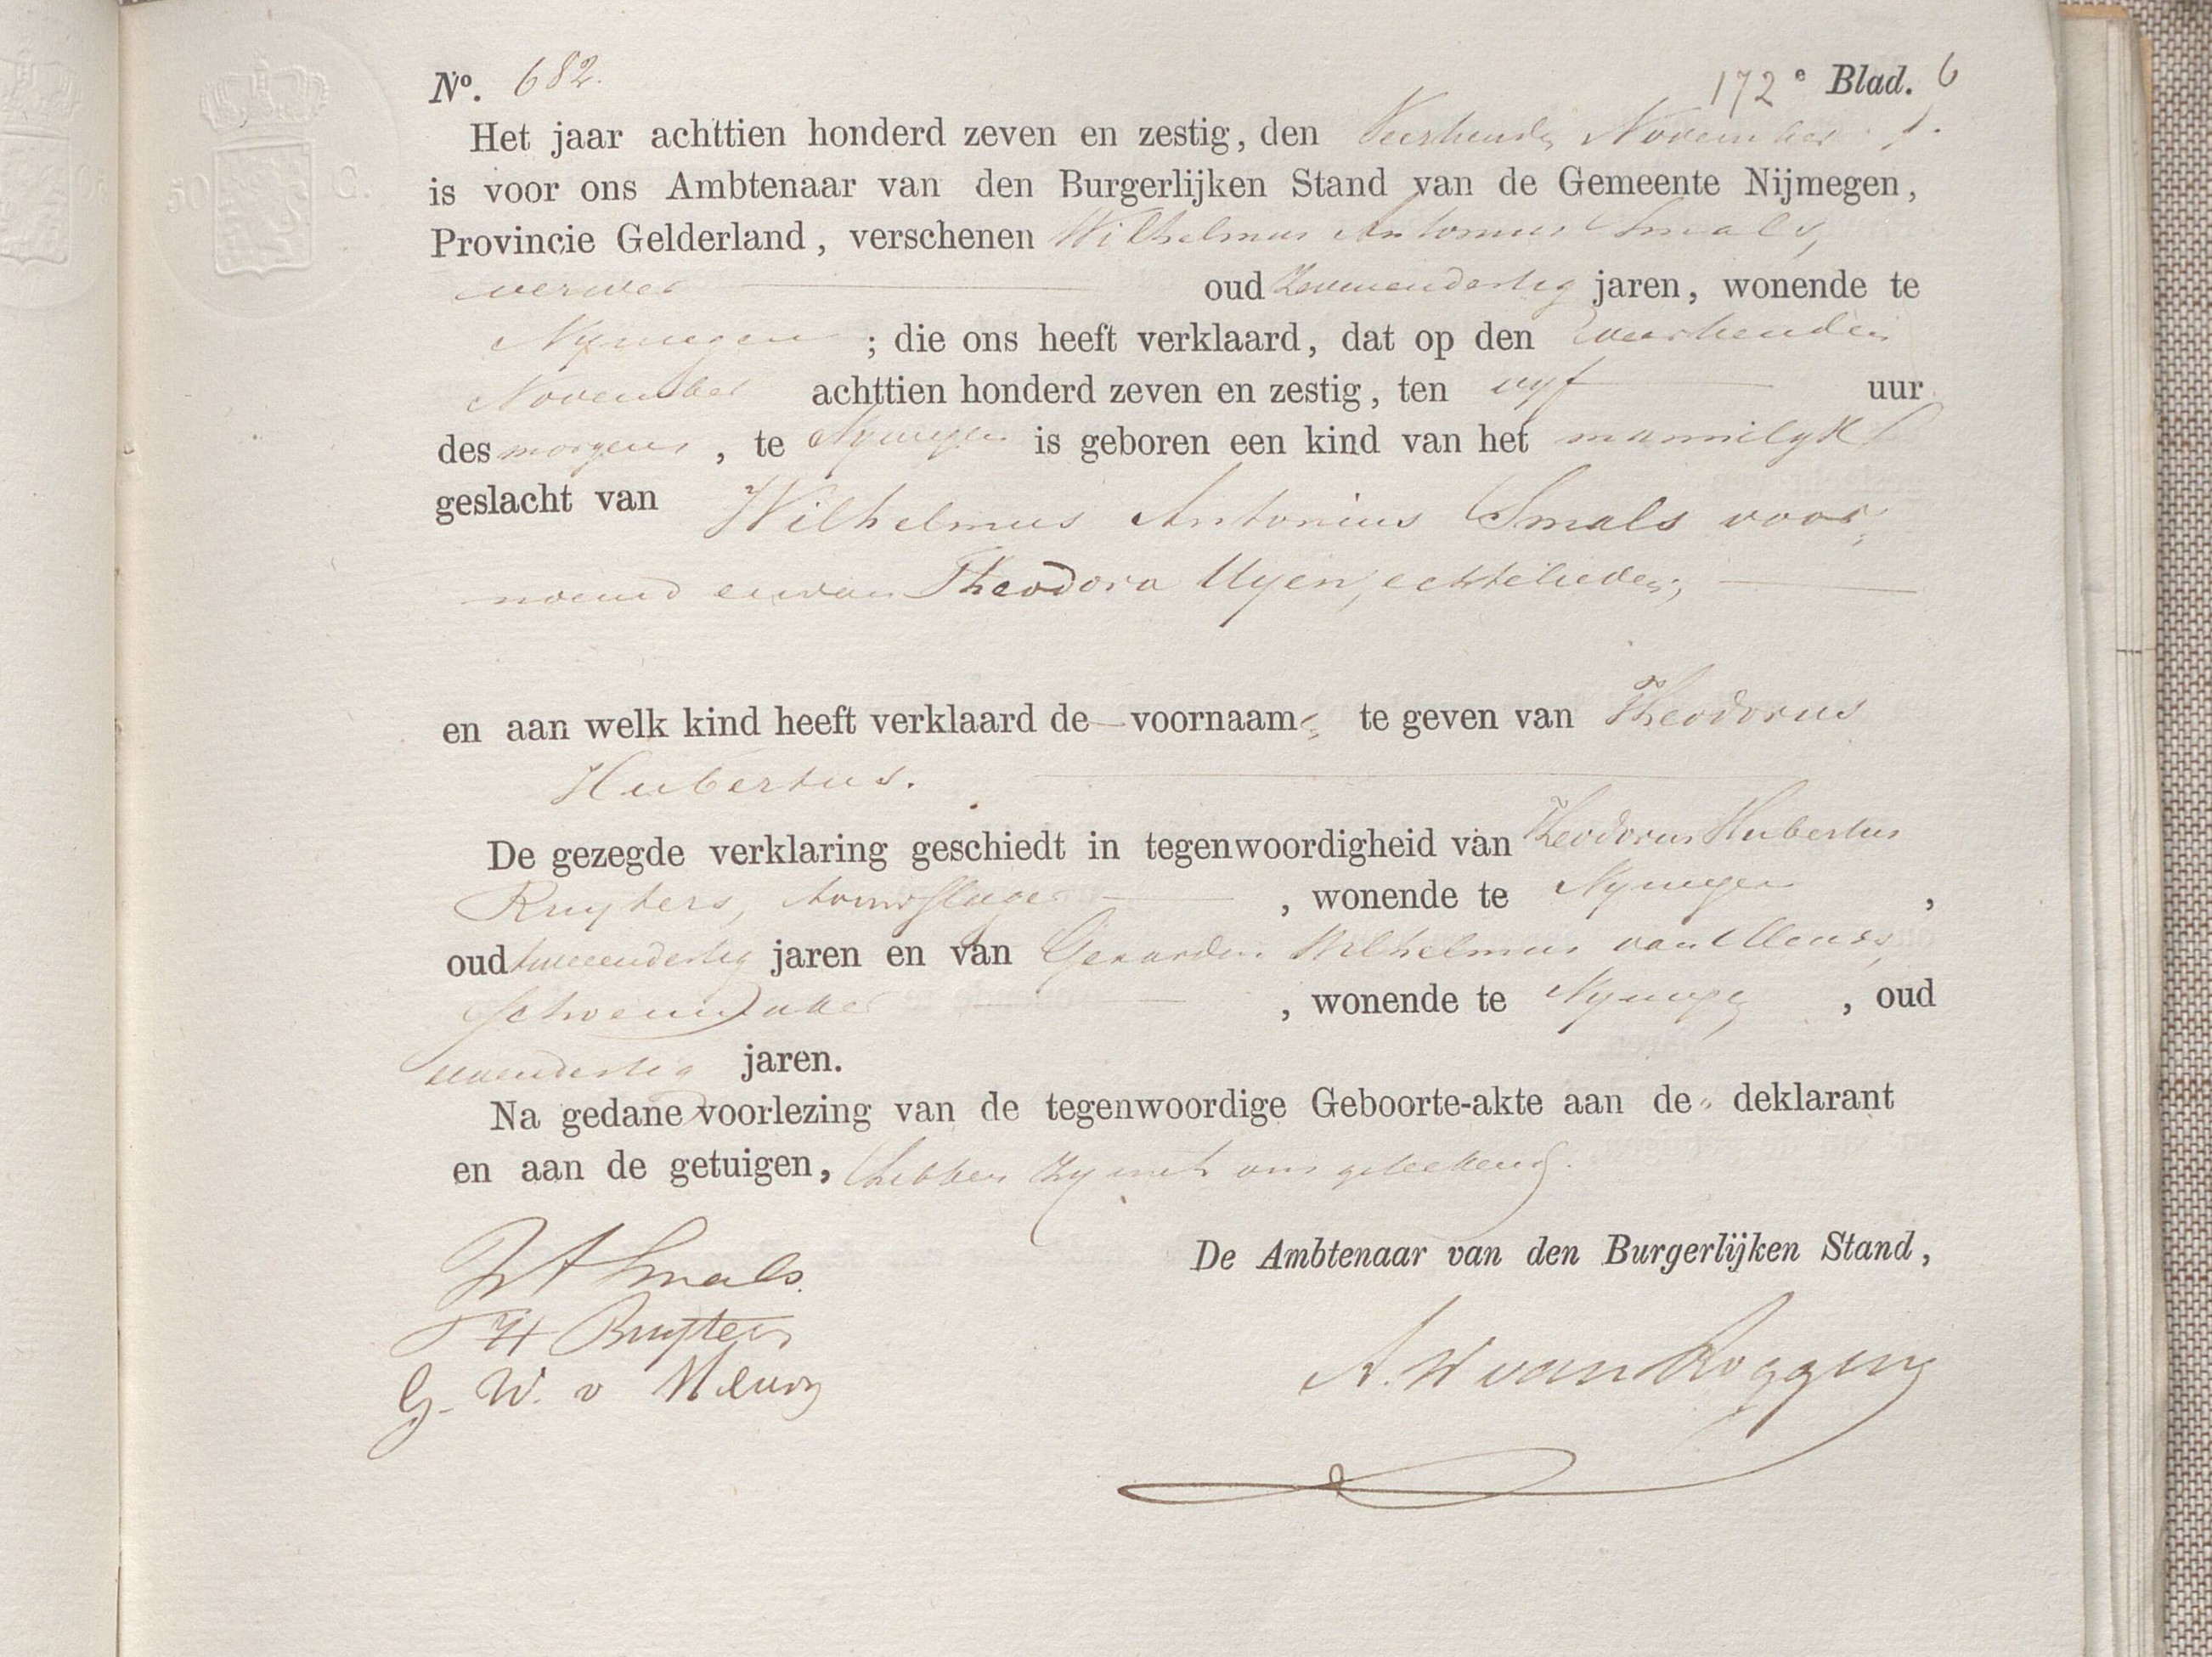 No. 682. 172e Blad. 6
Het jaar achttien honderd zeven en zestig, den Veertienden November
is voor ons Ambtenaar van den Burgerlijken Stand van de Gemeente Nijmegen,
Provincie Gelderland, verschenen Wilhelmus Antonius Smals,
verwer oud zevenendertig jaren, wonende te
Nymegen ; die ons heeft verklaard, dat op den
November achttien honderd zeven en zestig, ten vyf uur
des morgens, te Nymegen is geboren een kind van het mannelyk
geslacht van Wilhelmus Antonius Smals voor,
noemd en van Theodora Uyen, echtelieden,
en aan welk kind heeft verklaard de voornaam te geven van Theodorus
Hubertus.
De gezegde verklaring geschiedt in tegenwoordigheid van Theodorus Hubertus
Ruyters, , wonende te Nymegen ,
oud tweeendertig jaren en van Gerardus Wilhelmus van Meurs,
Schoenmaker , wonende te Nymegen , oud
jaren.
Na gedane voorlezing van de tegenwoordige Geboorte-akte aan de deklarant
en aan de getuigen, hebben zy met ons geteekend.
De Ambtenaar van den Burgerlijken Stand,
W A Smals.
T H Ruyters
G. W. v Meurs
A. W van Roggen
50 C.